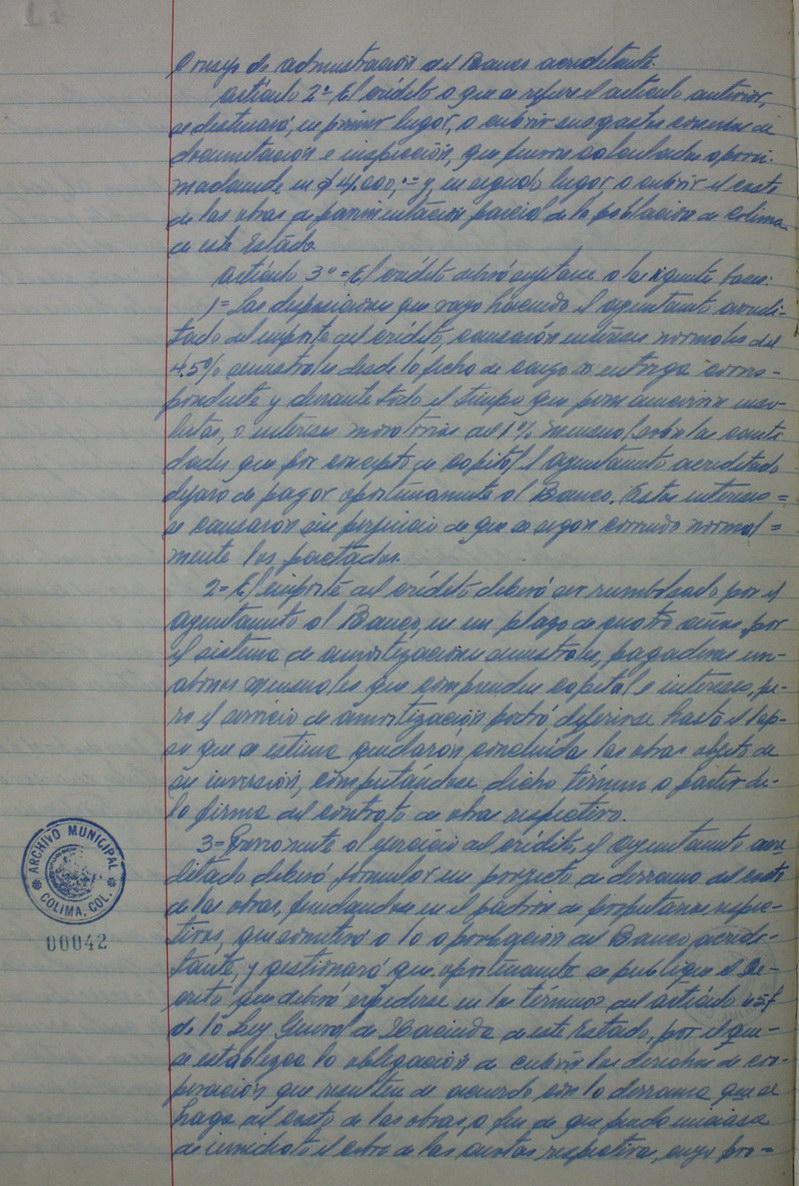 Consejo de administración del Banco acreditante.
artículo 2º El crédito a que se refiere el artículo anterior,
se destinará, en primer lugar, a cubrir sus gastos conexos de
documentación e inspección, que fueron calculados aproxi-
madamente en $4,000.= y en segundo lugar a cubrir el costo
de las obras de pavimentación parcial de la población de Colima
de este Estado.
artículo 3º= El crédito deberá sujetarse a las siguientes bases:
1= Las disposiciones que vaya haciendo el ayuntamiento acredi-
tado del importe del crédito, causarán intereses normales del
4.5% semestrales desde la fecha de cargo o entrega corres-
pondiente y durante todo el tiempo que permanecieren inso-
lutas, e intereses moratorios del 1% mensual sobre las canti
dades que por concepto de capital el ayuntamiento acreditado
dejara de pagar oportunamente al Banco. Estos intereses=
se causarán sin perjuicio de que se sigan corriendo normal=
mente los pactados.
2= El importe del crédito deberá ser reembolsado por el
ayuntamiento al Banco, en un plazo de cuatro años, por
el sistema de amortizaciones semestrales, pagaderas en-
abonos mensuales que comprenden capital e intereses, pe-
ro el servicio de amortización podrá diferirse hasta el lap-
so que se estima quedarán concluidas las obras objeto de
su inversión, computándose dicho término a partir de-
la firma del contrato de obras respectivo.
3= Previamente al ejercicio del crédito, el ayuntamiento acre
ditado deberá formular un proyecto de derrama del costo
de las obras, fundándose en el padrón de propietarios respec-
tivos, que someterá a la aprobación del Banco acredi-
tante, y gestionará que oportunamente se publique el De-
creto que deberá expedirse en los términos del artículo
de la Ley General de Hacienda de este Estado, por el que-
se establezca la obligación de cubrir los derechos de coo-
peración que resulten de acuerdo con la derrama que se
haga del costo de las obras, a fin de que pueda iniciarse
de inmediato el cobro de las cuotas respectivas, cuyo pro=
ARCHIVO MUNICIPAL
COLIMA, COL.
00042